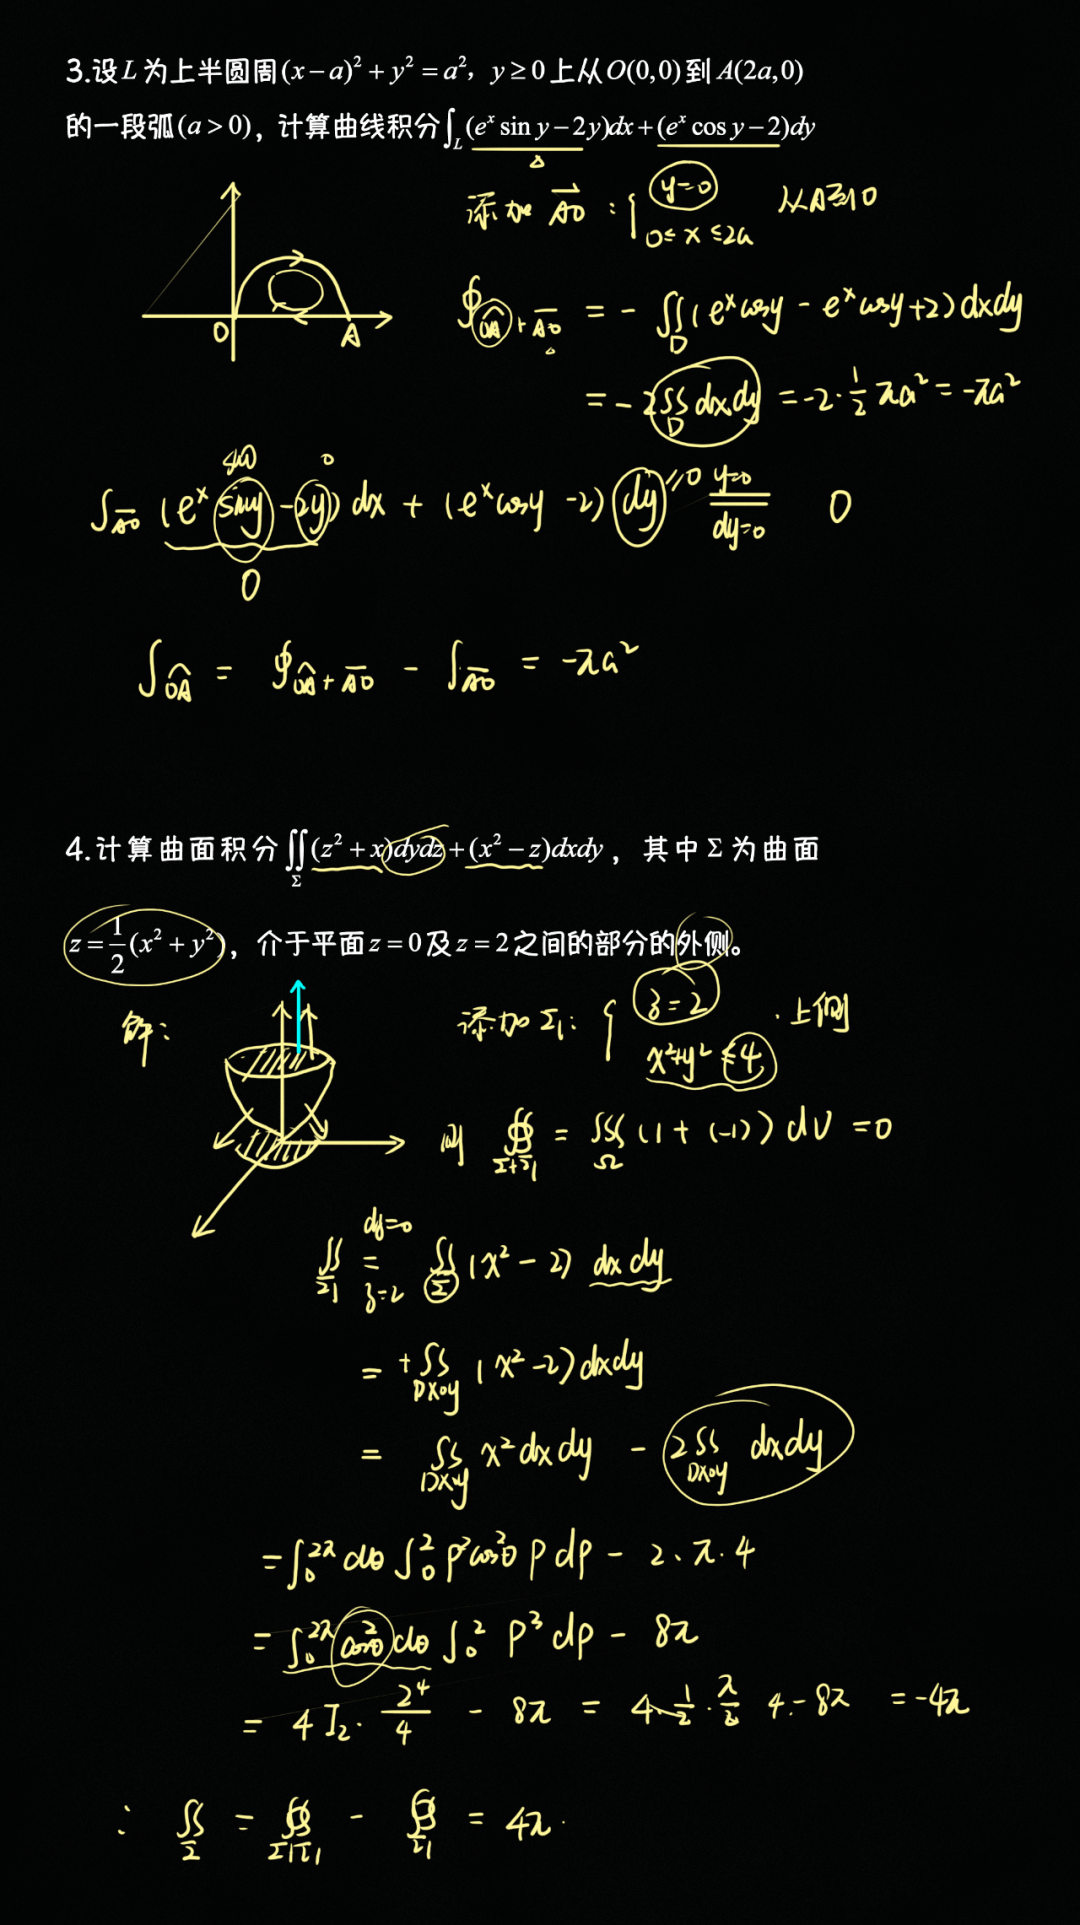 3.设L为上半圆周(x−a)²+y²=a²，y≥0上从O(0,0)到A(2a,0)
的一段弧(a>0)，计算曲线积分∫_L(eˣ sin y−2y)dx+(eˣ cos y−2)dy
添加 AO : { y=0 从A到O
0≤x≤2a
O A
∮_{OA+AO} = −∬_D (eˣcosy − eˣcosy+2)dxdy
= −2∬_D dxdy = −2·1/2 πa² = −πa²
sin0 0
∫_{AO} (eˣ siny −2y) dx + (eˣcosy −2) dy =0 y=0 dy=0 0
0
∫_{OA} = ∮_{OA+AO} − ∫_{AO} = −πa²
4.计算曲面积分∬_Σ(z²+x)dydz+(x²−z)dxdy，其中Σ为曲面
z=1/2(x²+y²)，介于平面z=0及z=2之间的部分的外侧。
解: 添加Σ₁: { z=2 .上侧
x²+y²≤4
则 ∯_{Σ+Σ₁} = ∭_Ω (1+(−1))dV =0
∬_{Σ₁} = dy=0 z=2 ∬_Σ (x²−2) dxdy
= +∬_{Dxoy} (x²−2)dxdy
= ∬_{Dxoy} x²dxdy − 2∬_{Dxoy} dxdy
=∫₀^{2π} dθ ∫₀² ρ²cos²θ ρ dρ − 2·π·4
= ∫₀^{2π} cos²θ dθ ∫₀² ρ³ dρ − 8π
= 4 I₂· 2⁴/4 − 8π = 4·1/2·π/2 4·−8π =−4π
∴ ∬_Σ = ∯_{Σ+Σ₁} − ∯_{Σ₁} = 4π.